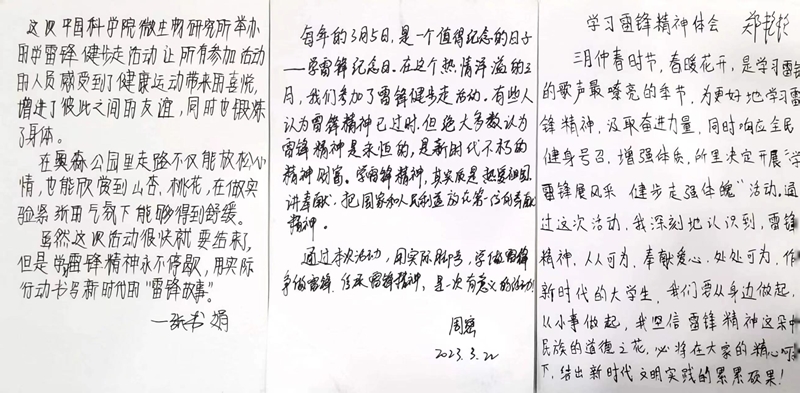 这次中国科学院微生物研究所举办
的学雷锋健步走活动让所有参加活动
的人员感受到了健康运动带来的喜悦,
增进了彼此之间的友谊,同时也锻炼
了身体。
在奥森公园里走路不仅能放松心
情,也能欣赏到山杏、桃花,在做实
验紧张气氛下能够得到舒缓。
虽然这次活动很快就要结束了,
但是学雷锋精神永不停歇,用实际
行动书写新时代的"雷锋故事"。
—张书娟
每年的3月5日,是一个值得纪念的日子
——学雷锋纪念日。在这个热情洋溢的三
月,我们参加了雷锋健步走活动。有些人
认为雷锋精神已过时,但绝大多数认为
雷锋精神是永恒的,是新时代不朽的
精神财富。学雷锋精神,其实质是热爱祖国,
讲奉献,把国家和人民利益放在第一位的奉献
精神。
通过本次活动,用实际脚步,学做雷锋
争做雷锋,传承雷锋精神,是一次有意义的活动!
周密
2023.3.22
学习雷锋精神体会 郑艳玲
三月仲春时节,春暖花开,是学习雷锋
的歌声最嘹亮的季节,为更好地学习雷
锋精神,汲取奋进力量,同时响应全民
健身号召,增强体质,所里决定开展"学
雷锋展风采 健步走强体魄"活动。通
过这次活动,我深刻地认识到,雷锋
精神,人人可为,奉献爱心,处处可为,作
新时代的大学生,我们要从身边做起,
从小事做起,我坚信雷锋精神这朵中
民族的道德之花,必将在大家的精心呵
下,结出新时代文明实践的累累硕果!